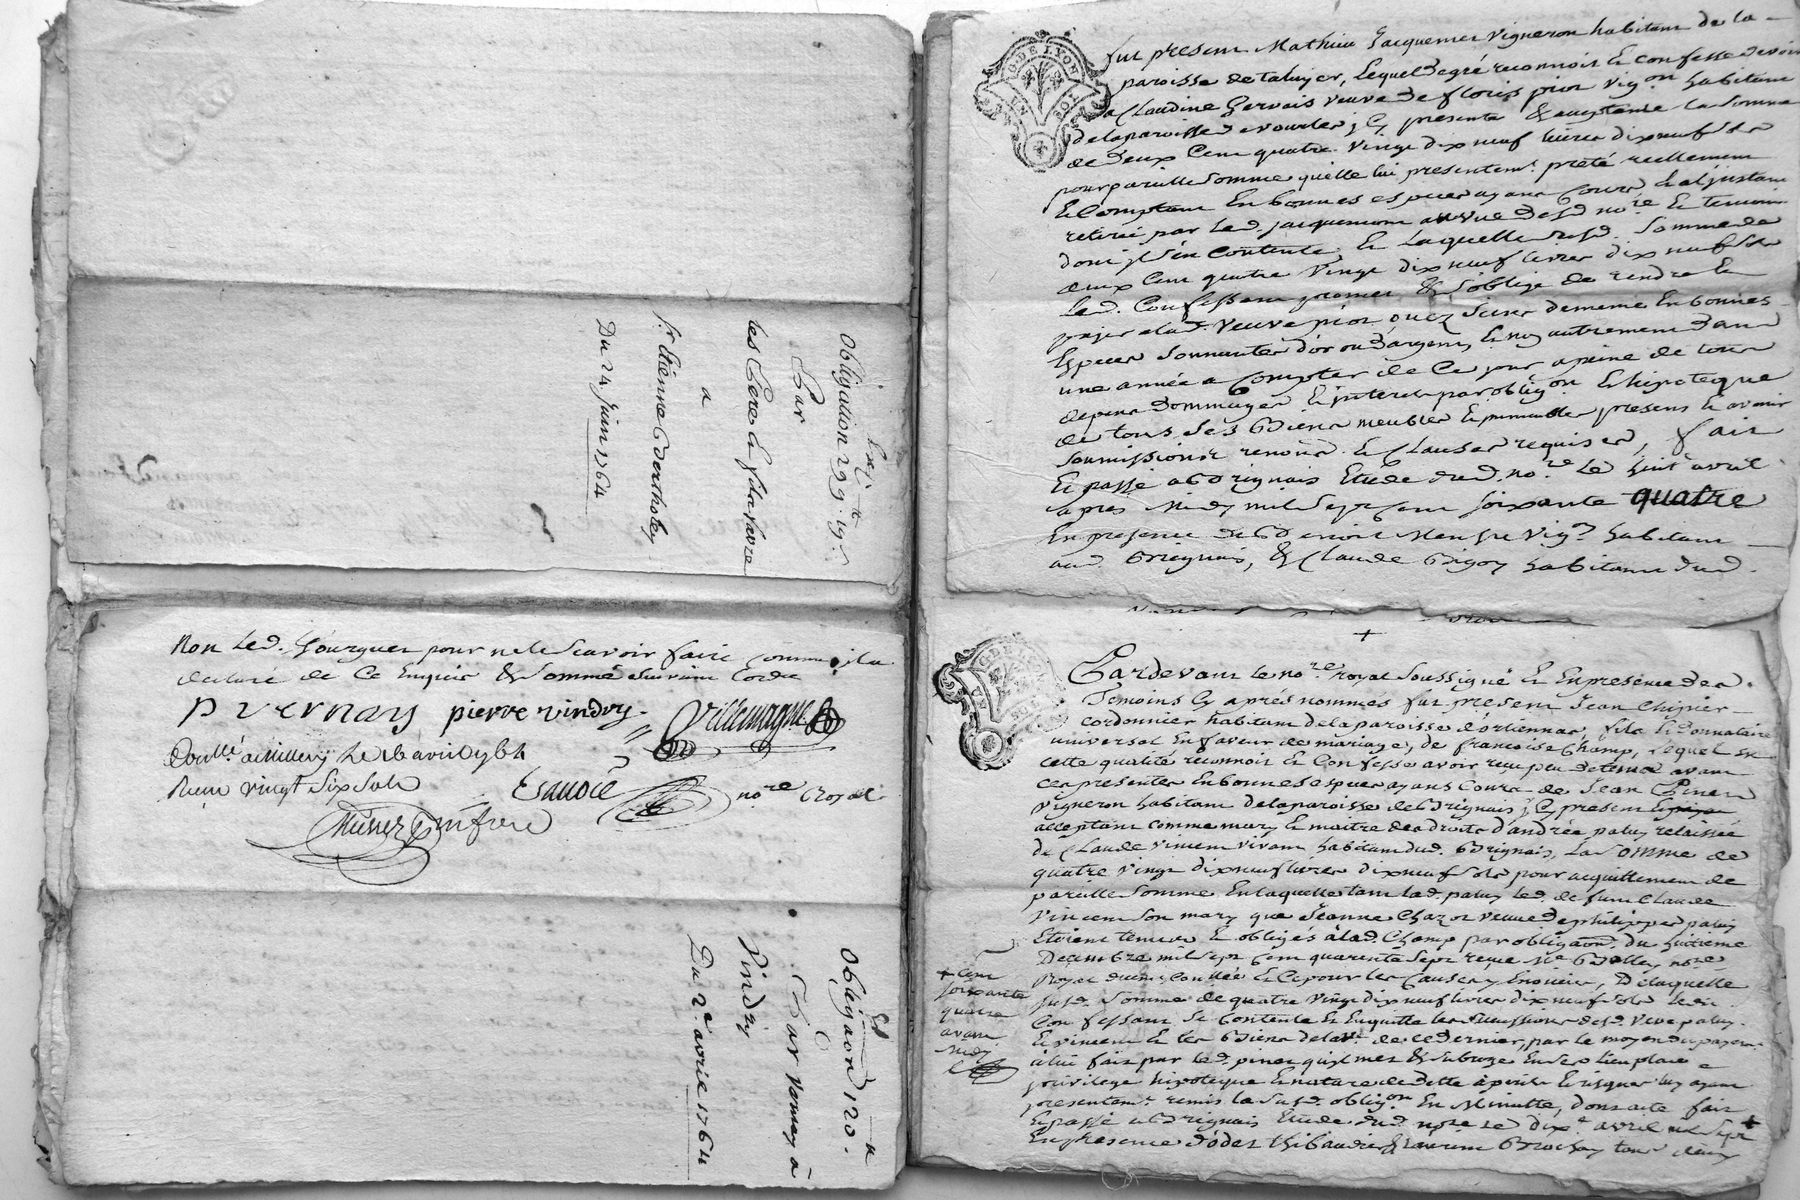 Obligation 299# 19s
Par
les Pere & fils favre
a
Sr. Etienne Berthole
Du 24 Juin 1764
Non led. pour ne le scavoir faire comme il a
declaré de ce enquis & sommé suivant l'ordce
P vernay pierre vindry Villemagne
Conllé a millery le 16 avril 1764
Reçu vingt six sols
nore Royal
Obligaon 120#
Par Vernay à
Vindry
Du 2e avril 1764
G DE LYON
UN SOL
fut present Mathieu Jacquemet vigneron habitant de la
paroisse de taluyer, lequel de gré reconnoit & confesse devoir
a Claudine Gervais veuve de fleurs pior vigon habitant
de la paroisse de vourles, icy presente & acceptante la somme
de deux Cent quatre vingt dix neuf livres dix neuf sols
pour pareille somme quelle lui a presentemt preté reellement
& comptant En bonnes especes ayant cours & a l'instant
retirée par led. jacquemet au vue desd nore & temoins
dont il s'en contente, & laquelle susd. somme de
deux Cent quatre vingt dix neuf livres dix neuf sols
led. Confessant promet & s'oblige de rendre &
payer a lad. veuve pior ou ez siens de meme En bonnes
Especes sonnantes d'or ou d'argent, & non autrement dans
une année a compter de ce jour a peine de tous
depens dommages & interets par obligon & hipoteque
de tous ses Biens meubles & immeubles presens & avenir
soumissions renonon & clauses requises, fait
& passé a Brignais Etude dud. nore le huit avril
apres midy mil sept cent soixante quatre
En presence de Benoit vigon habitant
aud. Brignais, & Claude Bigon habitant dud.
G DE LYON
SOL
Pardevant le nore Royal soussigné & En presence des
Temoins Cy après nommés fut present Jean
cordonnier habitant de la paroisse d'orlienas, fils & donnataire
universel En faveur de mariage, de francoise Champ, lequel En
cette qualité reconnoit & Confesse avoir reçu peu de tems avant
ces presentes En bonnes especes ayans cours de Jean Pinet
vigneron habitant de la paroisse de Brignais, icy present
acceptant comme mary & maitre des droits d'andrée paluy relaissée
de Claude vincent vivant habitant dud. Brignais, la somme de
quatre vingt dix neuf livres dix neuf sols pour acquittement de
pareille somme En laquelle tant lad. paluy led. defunt Claude
vincent son mary que Jeanne Chazot veuve de philippe paluy
Etoient tenus & obligés à lad. Champ par obligaon. du huitieme
Decembre mil sept cent quarante sept reçue Me nore
Royal & ce pour les causes y Enoncées, De laquelle
susd. somme de quatre vingt dix neuf livres dix neuf sols led.
Confessant se contente & En quitte les successions desd. veuve paluy
& vincent & les Biens de la ve de ce dernier, par le moyen du payemt
à lui fait par led. pinet qu'il met & subroge En ses lieu place
privilege hipoteque & nature de dette à perils & risques luy ayant
presentemt remis la susd. obligon En Minutte, dont acte fait
& passé a Brignais Etude dud. nore le dixe avril mil sept +
En presence d'odet thibaudier & laurent Brochay tous deux
+ cent
soixante
quatre
avant
midy